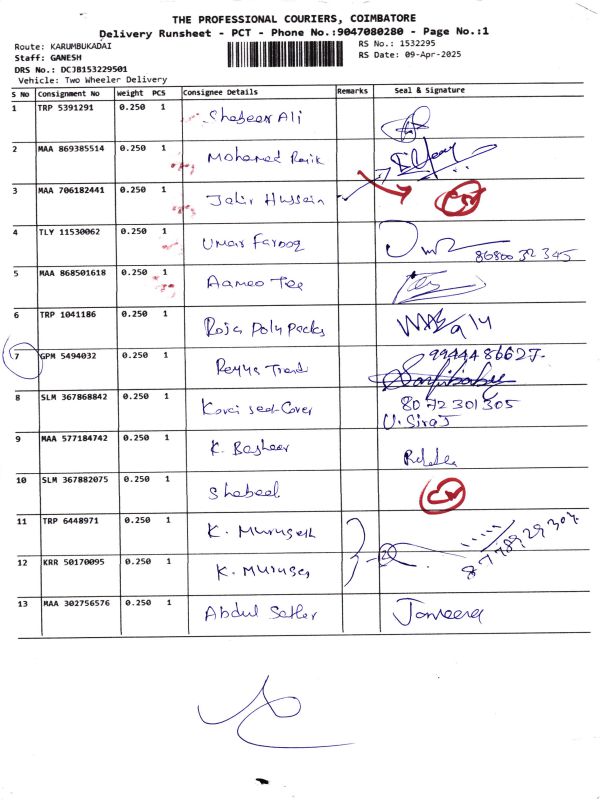 THE PROFESSIONAL COURIERS, COIMBATORE
Delivery Runsheet - PCT - Phone No.:9047080280 - Page No.:1
Route: KARUMBUKADAI RS No.: 1532295
Staff: GANESH RS Date: 09-Apr-2025
DRS No.: DCJB153229501
Vehicle: Two Wheeler Delivery
S No Consignment No Weight PCS Consignee Details Remarks Seal & Signature
1 TRP 5391291 0.250 1 Shabeer Ali
2 MAA 869385514 0.250 1 Mohamed Rafik
3 MAA 706182441 0.250 1 Jakir Hussain
4 TLY 11530062 0.250 1 Umar Farooq 8680032345
5 MAA 868501618 0.250 1 Aameo Tee
6 TRP 1041186 0.250 1 Roja Poly Packs
7 GPM 5494032 0.250 1 Trend
8 SLM 367868842 0.250 1 Kovai seat-Cover 8072301305
U. Siraj
9 MAA 577184742 0.250 1 K. Basheer
10 SLM 367882075 0.250 1 Shabeel
11 TRP 6448971 0.250 1 K. Murugesh
12 KRR 50170095 0.250 1 K. Muruges
13 MAA 302756576 0.250 1 Abdul